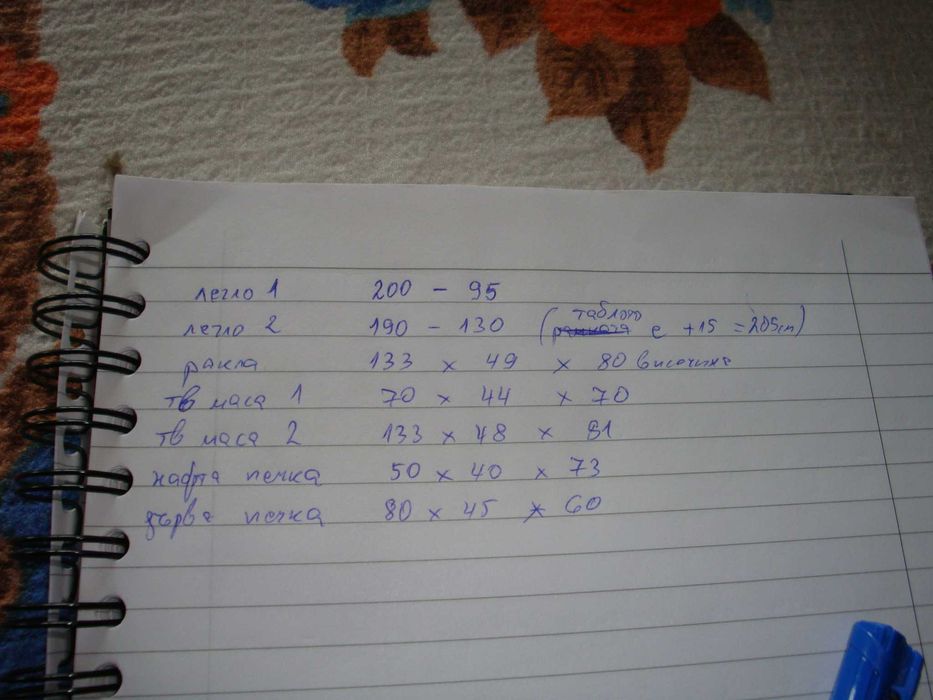 легло 1 200 - 95
легло 2 190 - 130 (таблото е +15 = 205cm)
ракла 133 x 49 x 80 височина
тв маса 1 70 x 44 x 70
тв маса 2 133 x 48 x 81
нафта печка 50 x 40 x 73
дърва печка 80 x 45 x 60